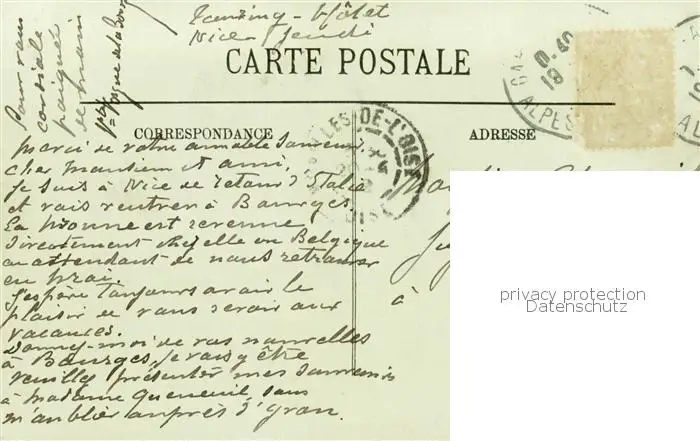 Nice Jeudi
CARTE POSTALE
Pour vous
cordiale
poignée
de main
CORRESPONDANCE
ADRESSE
LLES-DE-L'OISE
ALPES
merci de votre aimable souvenir,
cher monsieur et ami,
je suis à Nice de retour d'Italie
et vais rentrer à Bourges.
La bonne est revenue
directement chez elle en Belgique
en attendant de nous retrouver
en
J'espère toujours avoir le
plaisir de vous revoir aux
vacances.
Donnez-moi de vos nouvelles
à Bourges, je vais y être
veuillez présenter mes souvenirs
à madame Queneuil, sans
m'oublier auprès d'
à
privacy protection
Datenschutz